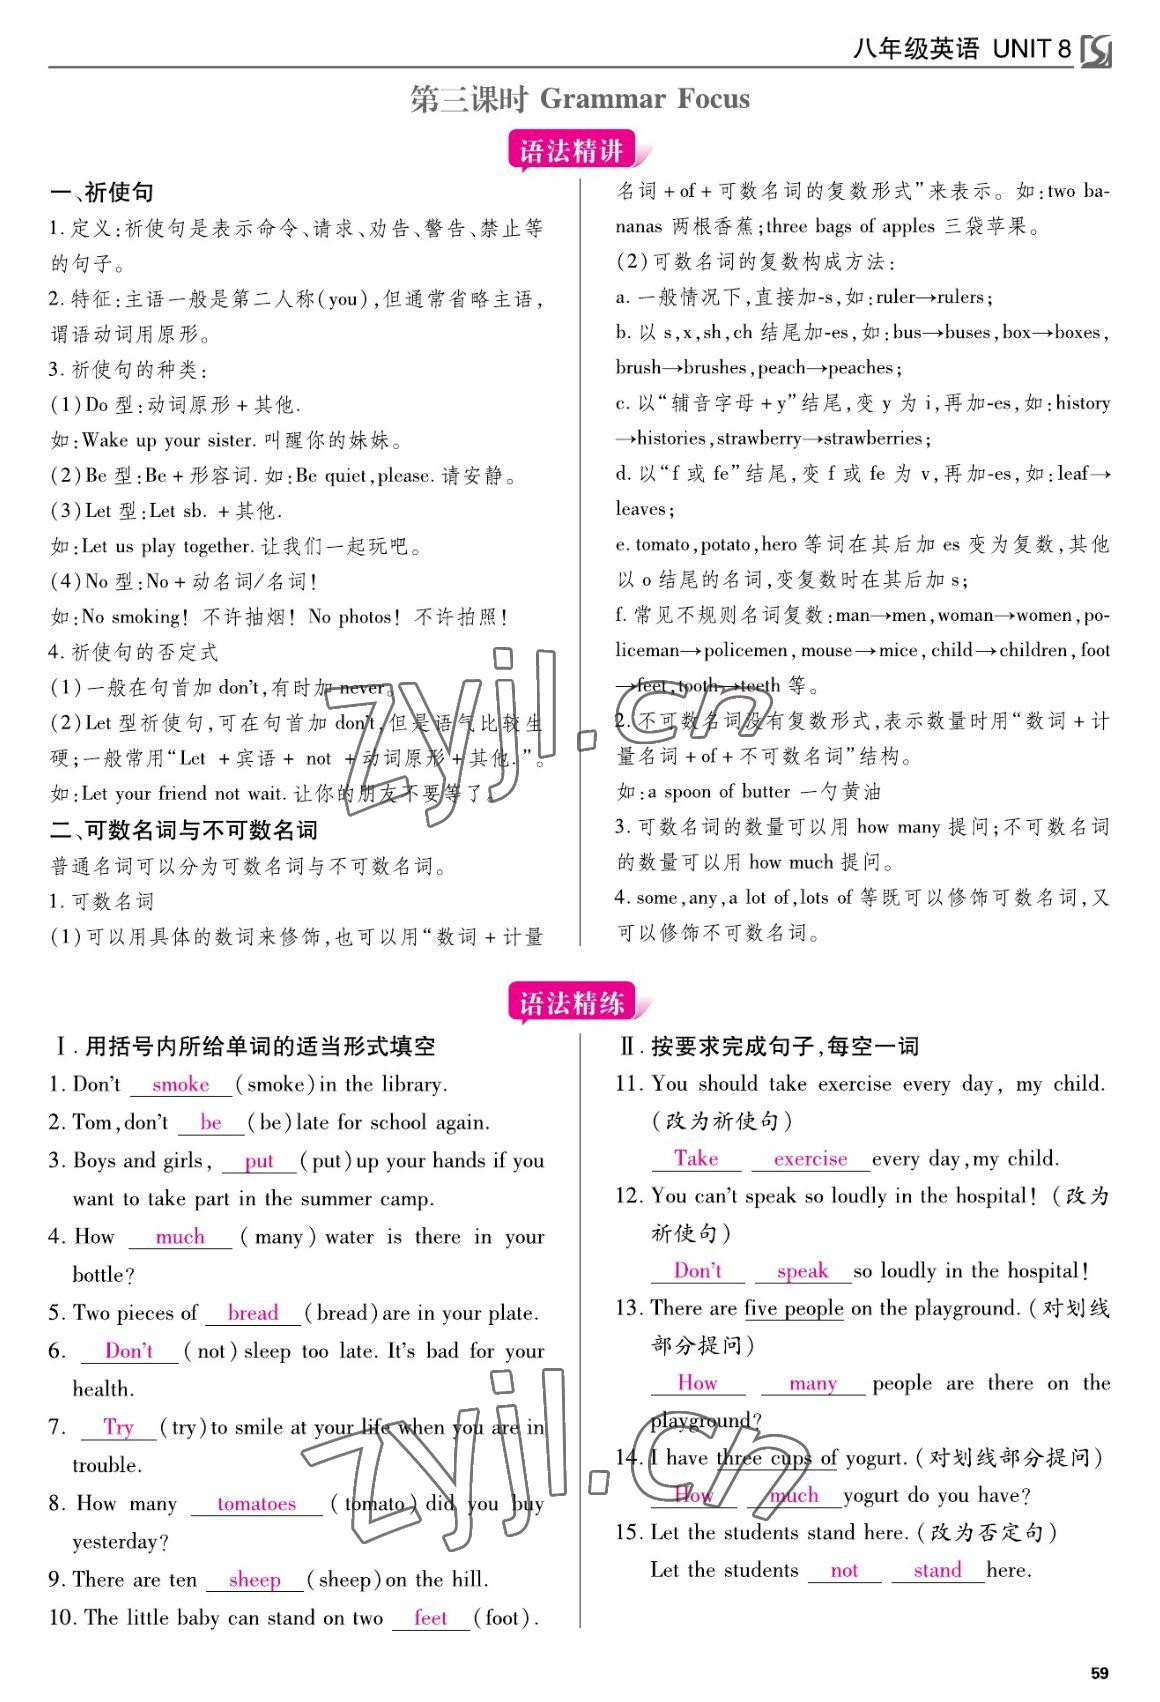 八年级英语 UNIT 8
第三课时 Grammar Focus
语法精讲
一、祈使句
1. 定义:祈使句是表示命令、请求、劝告、警告、禁止等
的句子。
2. 特征:主语一般是第二人称(you),但通常省略主语,
谓语动词用原形。
3. 祈使句的种类:
(1)Do 型:动词原形+其他.
如:Wake up your sister. 叫醒你的妹妹。
(2)Be 型:Be+形容词. 如:Be quiet,please. 请安静。
(3)Let 型:Let sb. +其他.
如:Let us play together. 让我们一起玩吧。
(4)No 型:No+动名词/名词!
如:No smoking! 不许抽烟! No photos! 不许拍照!
4. 祈使句的否定式
(1)一般在句首加 don't,有时加 never。
(2)Let 型祈使句,可在句首加 don't,但是语气比较生
硬;一般常用“Let +宾语+ not +动词原形+其他.”。
如:Let your friend not wait. 让你的朋友不要等了。
二、可数名词与不可数名词
普通名词可以分为可数名词与不可数名词。
1. 可数名词
(1)可以用具体的数词来修饰,也可以用“数词+计量
名词+of+可数名词的复数形式”来表示。如:two ba-
nanas 两根香蕉;three bags of apples 三袋苹果。
(2)可数名词的复数构成方法:
a. 一般情况下,直接加-s,如:ruler→rulers;
b. 以 s,x,sh,ch 结尾加-es,如:bus→buses,box→boxes,
brush→brushes,peach→peaches;
c. 以“辅音字母+y”结尾,变 y 为 i,再加-es,如:history
→histories,strawberry→strawberries;
d. 以“f 或 fe”结尾,变 f 或 fe 为 v,再加-es,如:leaf→
leaves;
e. tomato,potato,hero 等词在其后加 es 变为复数,其他
以 o 结尾的名词,变复数时在其后加 s;
f. 常见不规则名词复数:man→men,woman→women,po-
liceman→policemen,mouse→mice,child→children,foot
→feet,tooth→teeth 等。
2. 不可数名词没有复数形式,表示数量时用“数词+计
量名词+of+不可数名词”结构。
如:a spoon of butter 一勺黄油
3. 可数名词的数量可以用 how many 提问;不可数名词
的数量可以用 how much 提问。
4. some,any,a lot of,lots of 等既可以修饰可数名词,又
可以修饰不可数名词。
zyjl.cn
语法精练
Ⅰ. 用括号内所给单词的适当形式填空
1. Don't smoke (smoke)in the library.
2. Tom,don't be (be)late for school again.
3. Boys and girls, put (put)up your hands if you
want to take part in the summer camp.
4. How much (many) water is there in your
bottle?
5. Two pieces of bread (bread)are in your plate.
6. Don't (not)sleep too late. It's bad for your
health.
7. Try (try)to smile at your life when you are in
trouble.
8. How many tomatoes (tomato) did you buy
yesterday?
9. There are ten sheep (sheep)on the hill.
10. The little baby can stand on two feet (foot).
Ⅱ. 按要求完成句子,每空一词
11. You should take exercise every day, my child.
(改为祈使句)
Take exercise every day,my child.
12. You can't speak so loudly in the hospital! (改为
祈使句)
Don't speak so loudly in the hospital!
13. There are five people on the playground. (对划线
部分提问)
How many people are there on the
playground?
14. I have three cups of yogurt. (对划线部分提问)
How much yogurt do you have?
15. Let the students stand here. (改为否定句)
Let the students not stand here.
zyjl.cn
59